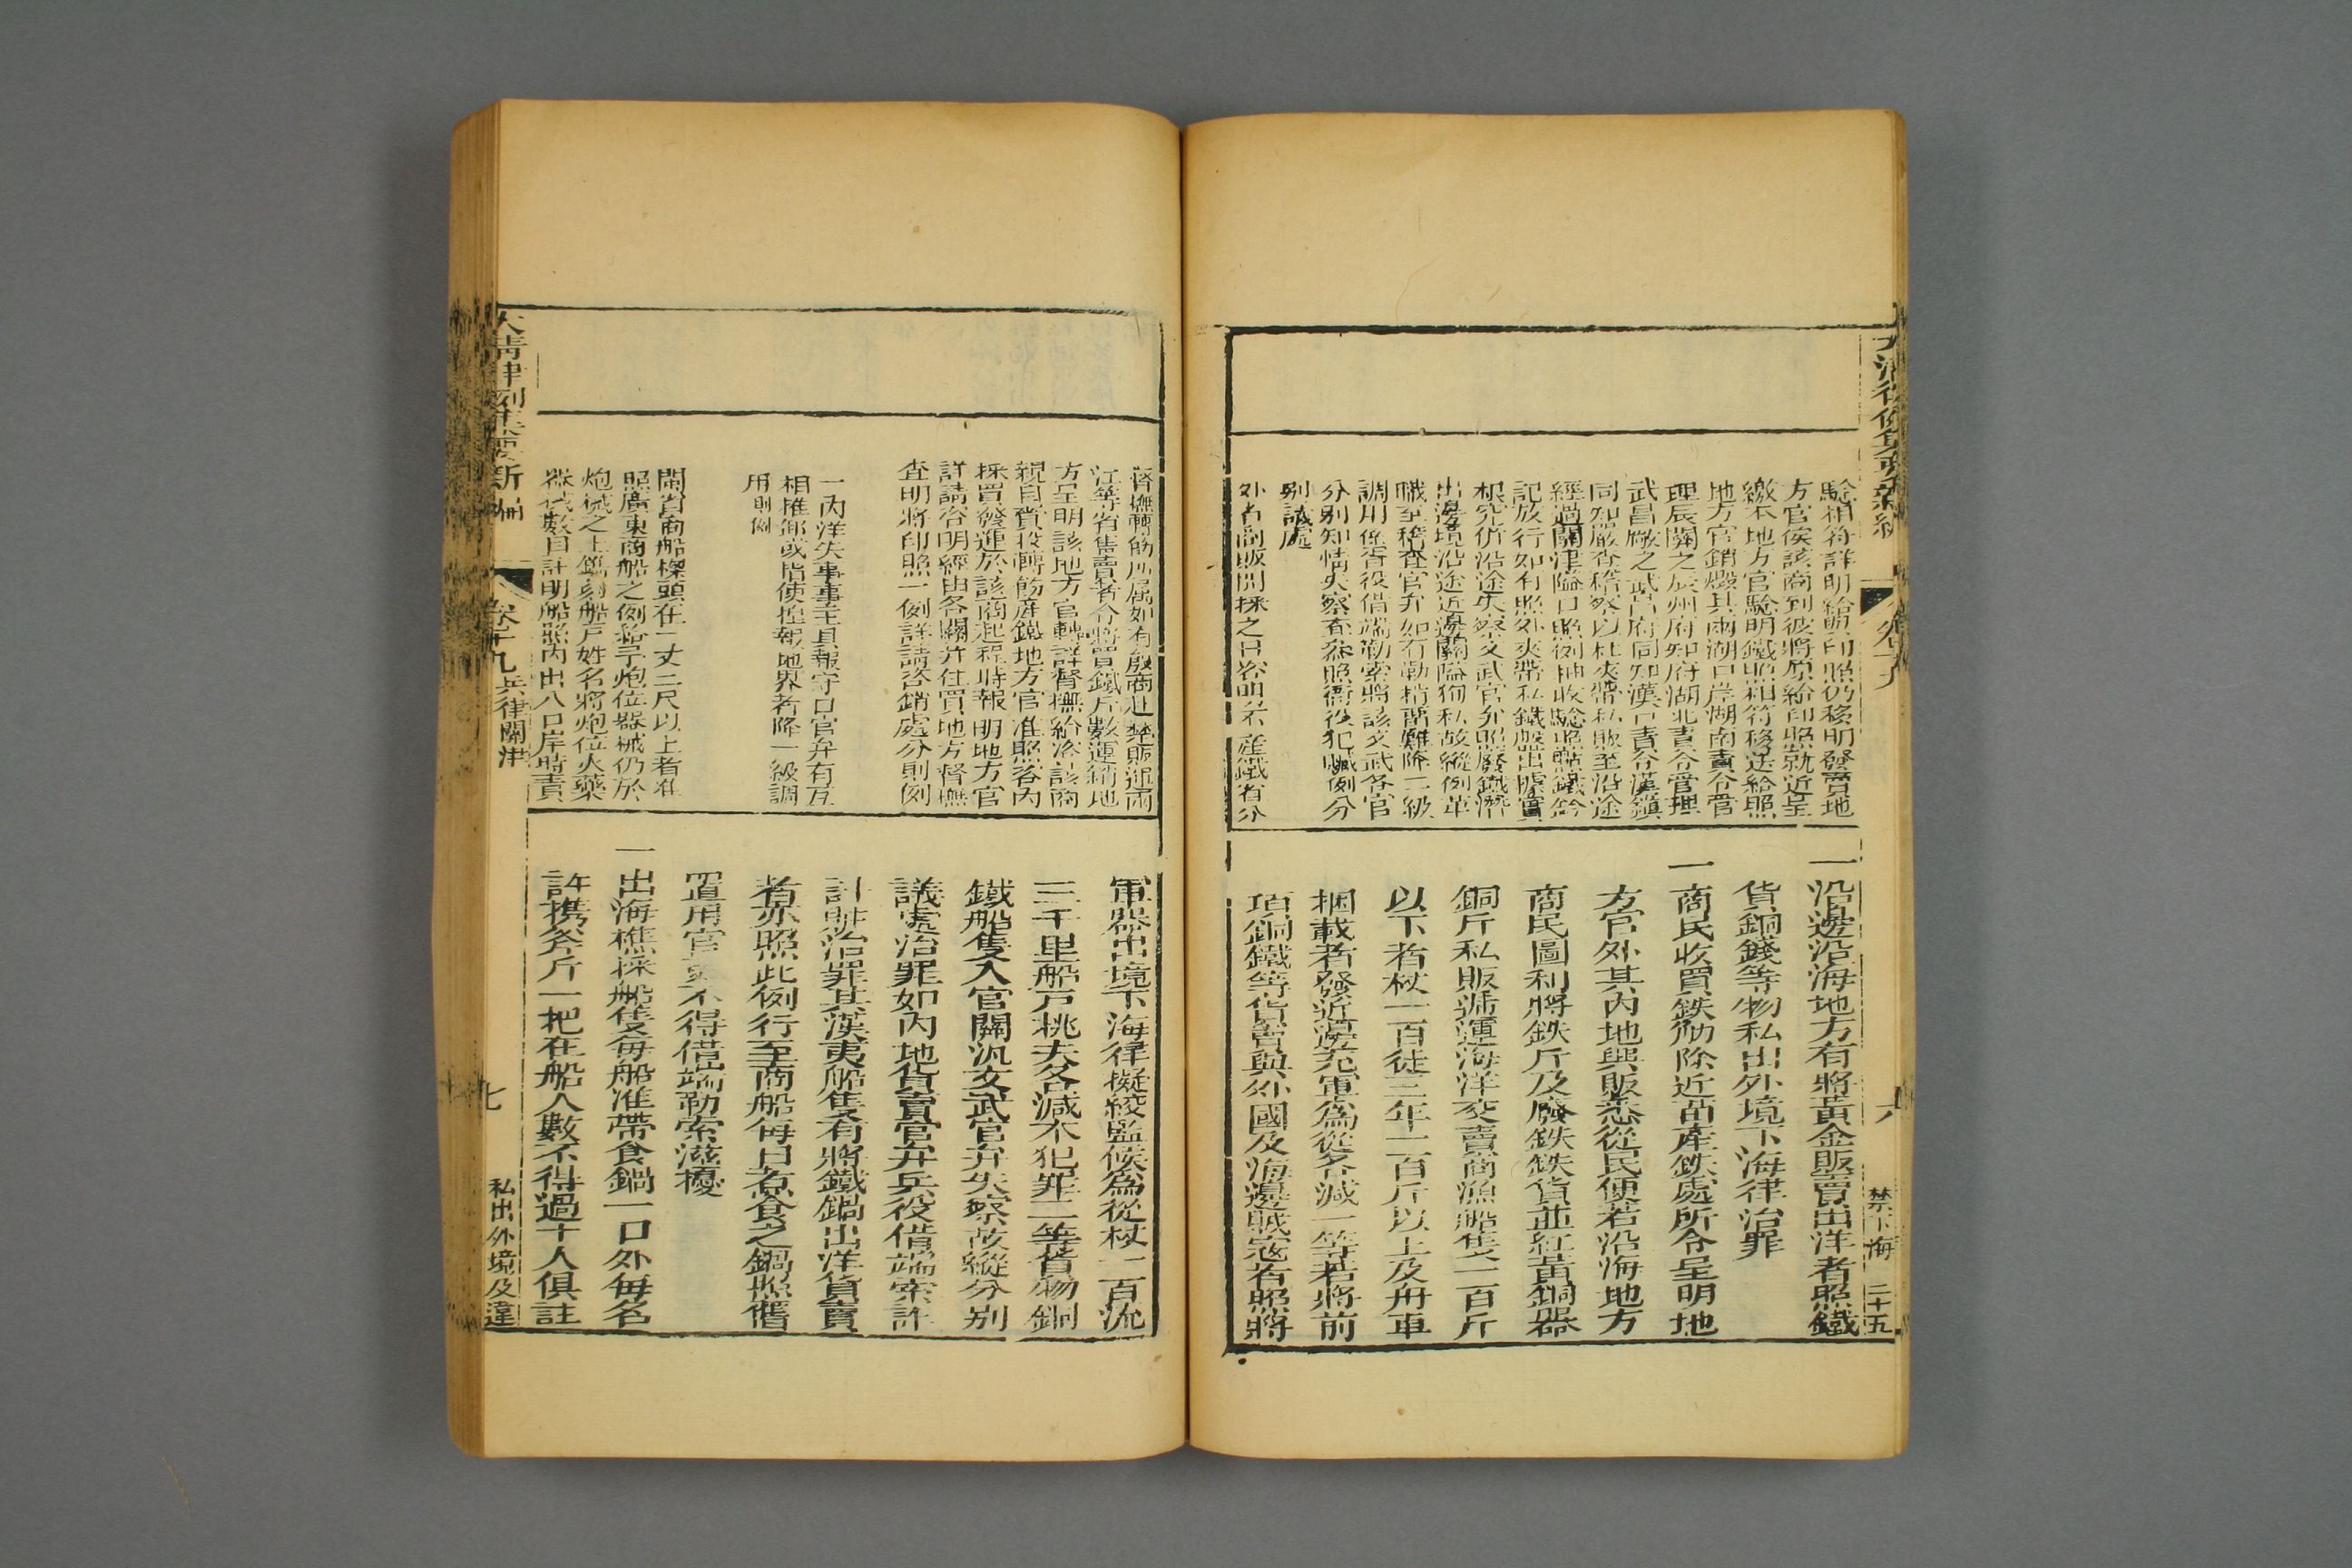 一沿邊沿海地方有將黃金販賣出洋者照鐵
貨銅錢等物私出外境下海律治罪
一商民收買鉄觔除近苗產鉄處所令呈明地
方官外其內地興販悉從民便若沿海地方
商民圖利將鉄斤及廢鉄鉄貨並紅黃銅器
銅斤私販逓運海洋交賣商漁船隻一百斤
以下者杖一百徒三年一百斤以上及舟車
捆載者發近邊充軍為從各減一等若將前
項銅鐵等貨賣與外國及海邊賊寇者照將
驗相符詳明給與印照仍移明發賣地
方官俟該商到彼將原給印照就近呈
繳本地方官驗明鐵照相符移送給照
地方官銷燬其兩湖口岸湖南責令管
理辰關之辰州府知府湖北責令管理
武昌廠之武昌府同知漢口責令漢鎮
同知嚴查稽察以杜夾帶私販至沿途
經過關津隘口照例抽收驗照點鐵鈐
記放行如有照外夾帶私鐵盤出據實
根究仍沿途失察文武官弁照廢鐵潛
出邊境沿途近邊關隘徇私故縱例革
職至稽查官弁如有勒掯留難降二級
調用係書役借端勒索將該文武各官
分別知情失察查參照衙役犯贓例分
別議處
外省商販開採之日咨明出產鐵省分
督撫轉飭所屬如有殷商赴楚販運兩
江等省售賣者令將買鐵斤數運銷地
方呈明該地方官轉詳督撫給咨該商
親自賫投轉飭產鐵地方官准照咨內
採買發運於該商起程時報明地方官
詳請咨明經由各關并住買地方督撫
查明將印照一例詳請咨銷處分則例
一內洋失事事主具報守口官弁有互
相推卸或指使捏報地界者降一級調
用則例
閩省商船樑頭在一丈二尺以上者准
照廣東商船之例給予炮位器械仍於
炮械之上鐫刻船戶姓名將炮位火藥
器械數目註明船照內出入口岸時責
軍器出境下海律擬絞監候為從杖一百流
三千里船戶挑夫各減本犯罪二等貨物銅
鐵船隻入官關汛文武官弁失察故縱分別
議處治罪如內地貨賣官弁兵役借端索詐
計贓治罪其漢夷船隻有將鐵鍋出洋貨賣
者亦照此例行至商船每日煮食之鍋照舊
置用官員不得借端勒索滋擾
一出海樵採船隻每船准帶食鍋一口外每名
許携斧斤一把在船人數不得過十人俱註
大清律例集要新編
卷十九兵律關津
七
私出外境及違
大清律例集要新編
卷十九
六
禁下海
二十五